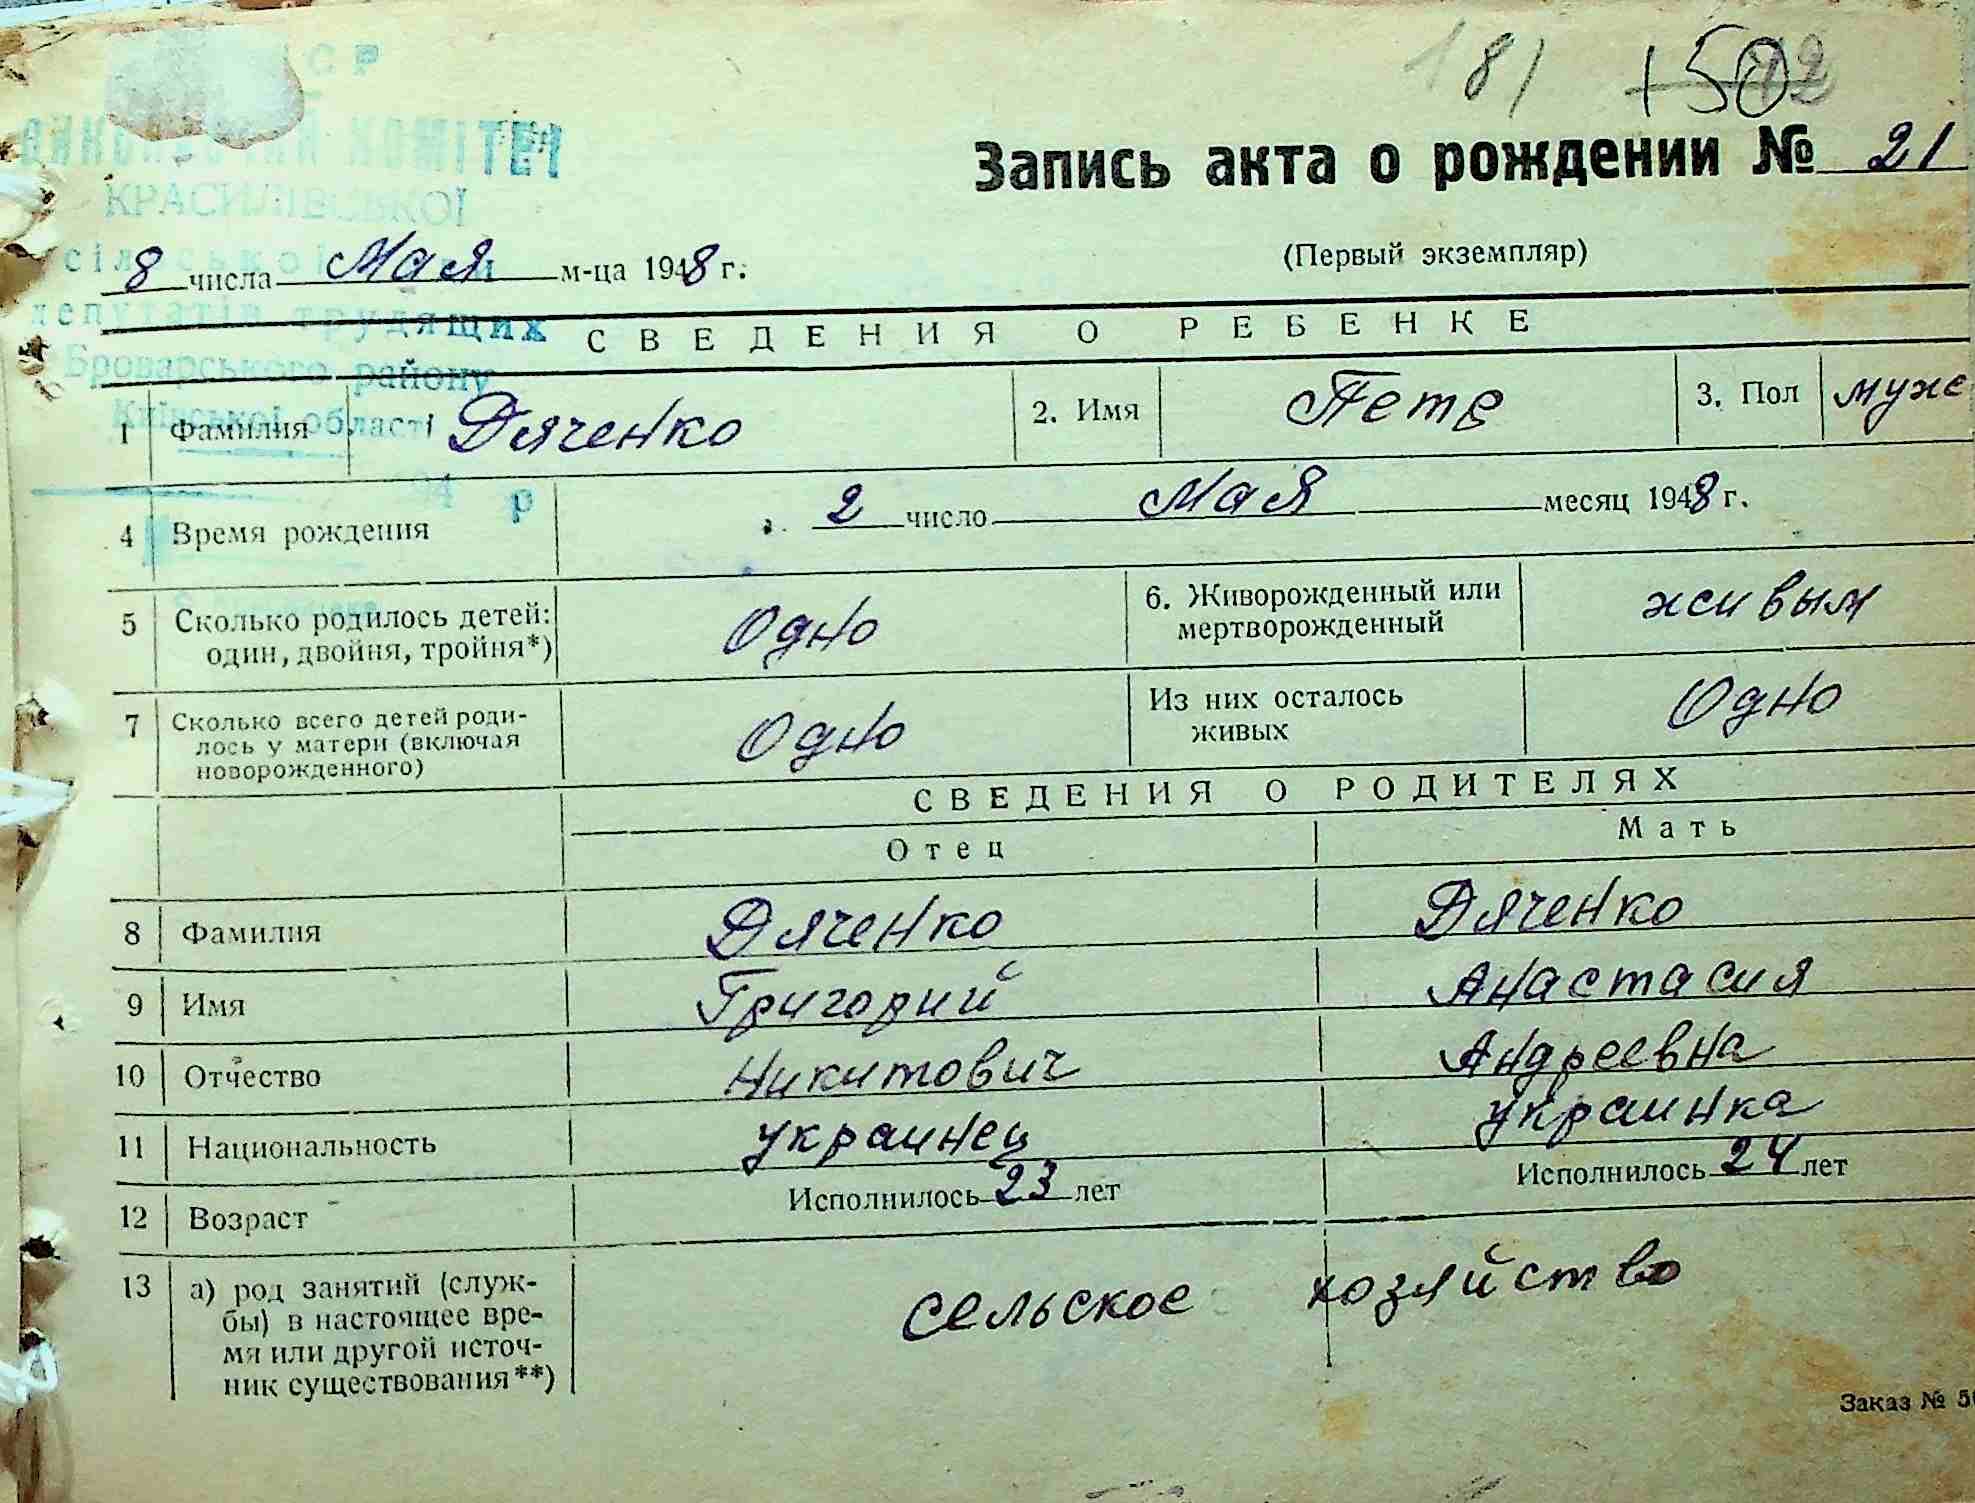 СР
181 150
ВИКОНАВЧИЙ КОМІТЕТ
КРАСИЛІВСЬКОЇ
сільської
депутатів трудящих
Броварського району
Київської області
194 р
Запись акта о рождении № 21
(Первый экземпляр)
8 числа Мая м-ца 1948 г.
СВЕДЕНИЯ О РЕБЕНКЕ
1 Фамилия Дяченко 2. Имя Петр 3. Пол муже
4 Время рождения 2 число Мая месяц 1948 г.
5 Сколько родилось детей: один, двойня, тройня*) Одно 6. Живорожденный или мертворожденный живым
7 Сколько всего детей роди-
лось у матери (включая
новорожденного) Одно Из них осталось живых Одно
СВЕДЕНИЯ О РОДИТЕЛЯХ
Отец Мать
8 Фамилия Дяченко Дяченко
9 Имя Григорий Анастасия
10 Отчество Никитович Андреевна
11 Национальность украинец украинка
12 Возраст Исполнилось 23 лет Исполнилось 24 лет
13 а) род занятий (служ-
бы) в настоящее вре-
мя или другой источ-
ник существования**) сельское хозяйство
Заказ №